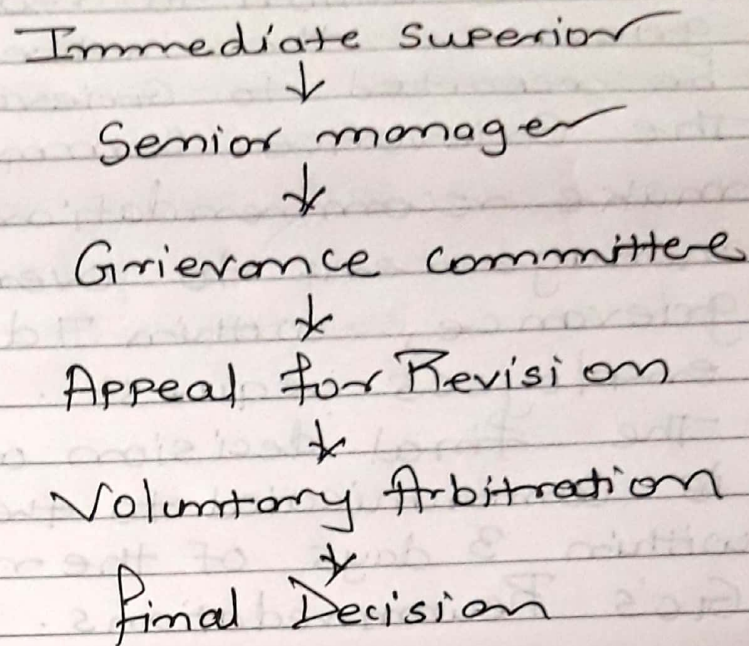 Immediate superior
↓
Senior manager
↓
Grievance committee
↓
Appeal for Revision
↓
Voluntary Arbitration
↓
final Decision